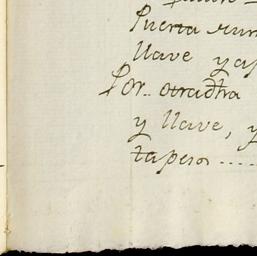 Puerta
llave y ap
Por.. otra dha
y llave, y
tapesos .....